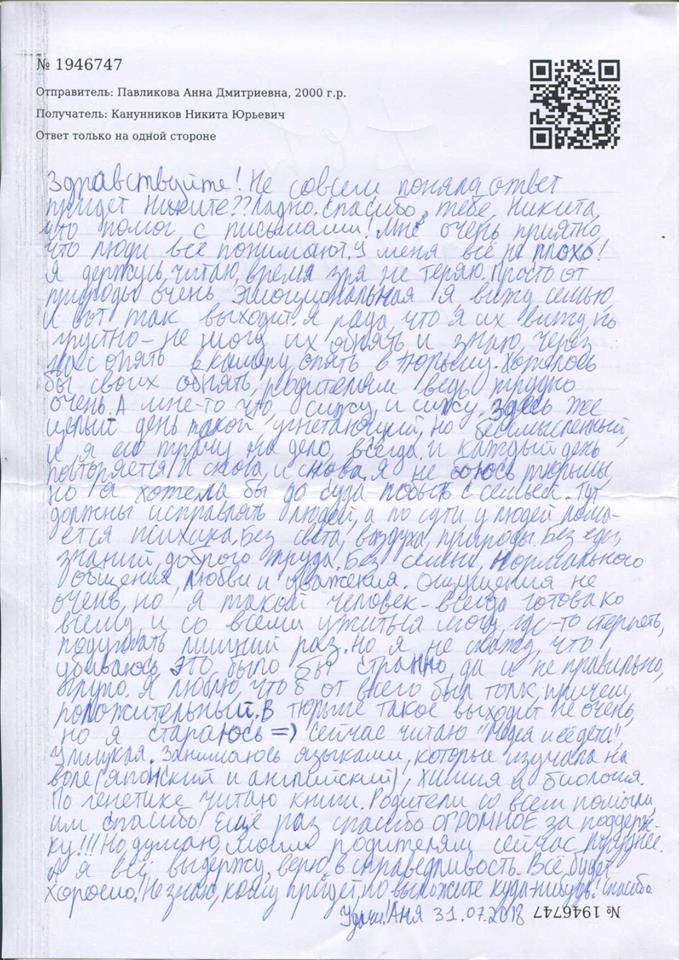 № 1946747
Отправитель: Павликова Анна Дмитриевна, 2000 г.р.
Получатель: Канунников Никита Юрьевич
Ответ только на одной стороне
Здравствуйте! Не совсем поняла, ответ
придет Никите?? Ладно. Спасибо, тебе, Никита,
что помог с письмами! Мне очень приятно,
что люди всё понимают. У меня всё не плохо!
Я держусь, читаю, время зря не теряю. Просто от
природы очень эмоциональная я вижу семью
и вот так выходит. Я рада, что я их вижу, но
грустно - не могу их обнять и знаю, через
час опять в камеру, опять в тюрьму. Хотелось
бы своих обнять, родителям ведь трудно
очень. А мне-то что, сижу и сижу. Здесь же
целый день такой угнетающий, но бессмысленный,
и я его трачу на дело, всегда. И каждый день
повторяется и снова, и снова. Я не боюсь тюрьмы,
но я хотела бы до суда побыть с семьей. Тут
должны исправлять людей, а по сути у людей лома-
ется психика. Без света, воздуха, природы. Без еды,
знаний, доброго труда. Без семьи, нормального
общения, любви и уважения. Ощущения не
очень, но я такой человек - всегда готова ко
всему, и со всеми ужиться могу, где-то стерпеть,
подумать лишний раз. Но я не скажу, что
убиваюсь. Это было бы странно, да и не правильно,
глупо. Я люблю, что б от всего был толк, причем,
положительный. В тюрьме такое выходит не очень,
но я стараюсь =) Сейчас читаю "Медея и её дети"
Улицкая. Занимаюсь языками, которые изучала на
воле (японский и английский), химия и биология.
По генетике читаю книги. Родители со всем помогли,
им спасибо! Ещё раз спасибо ОГРОМНОЕ за поддерж-
ку!!! Но думаю, моим родителям сейчас труднее.
А я всё выдержу, верю в справедливость. Всё будет
хорошо! Не знаю, кому придёт, но выложите куда-нибудь! Спасибо
Удачи! Аня 31.07.2018
№ 1946747